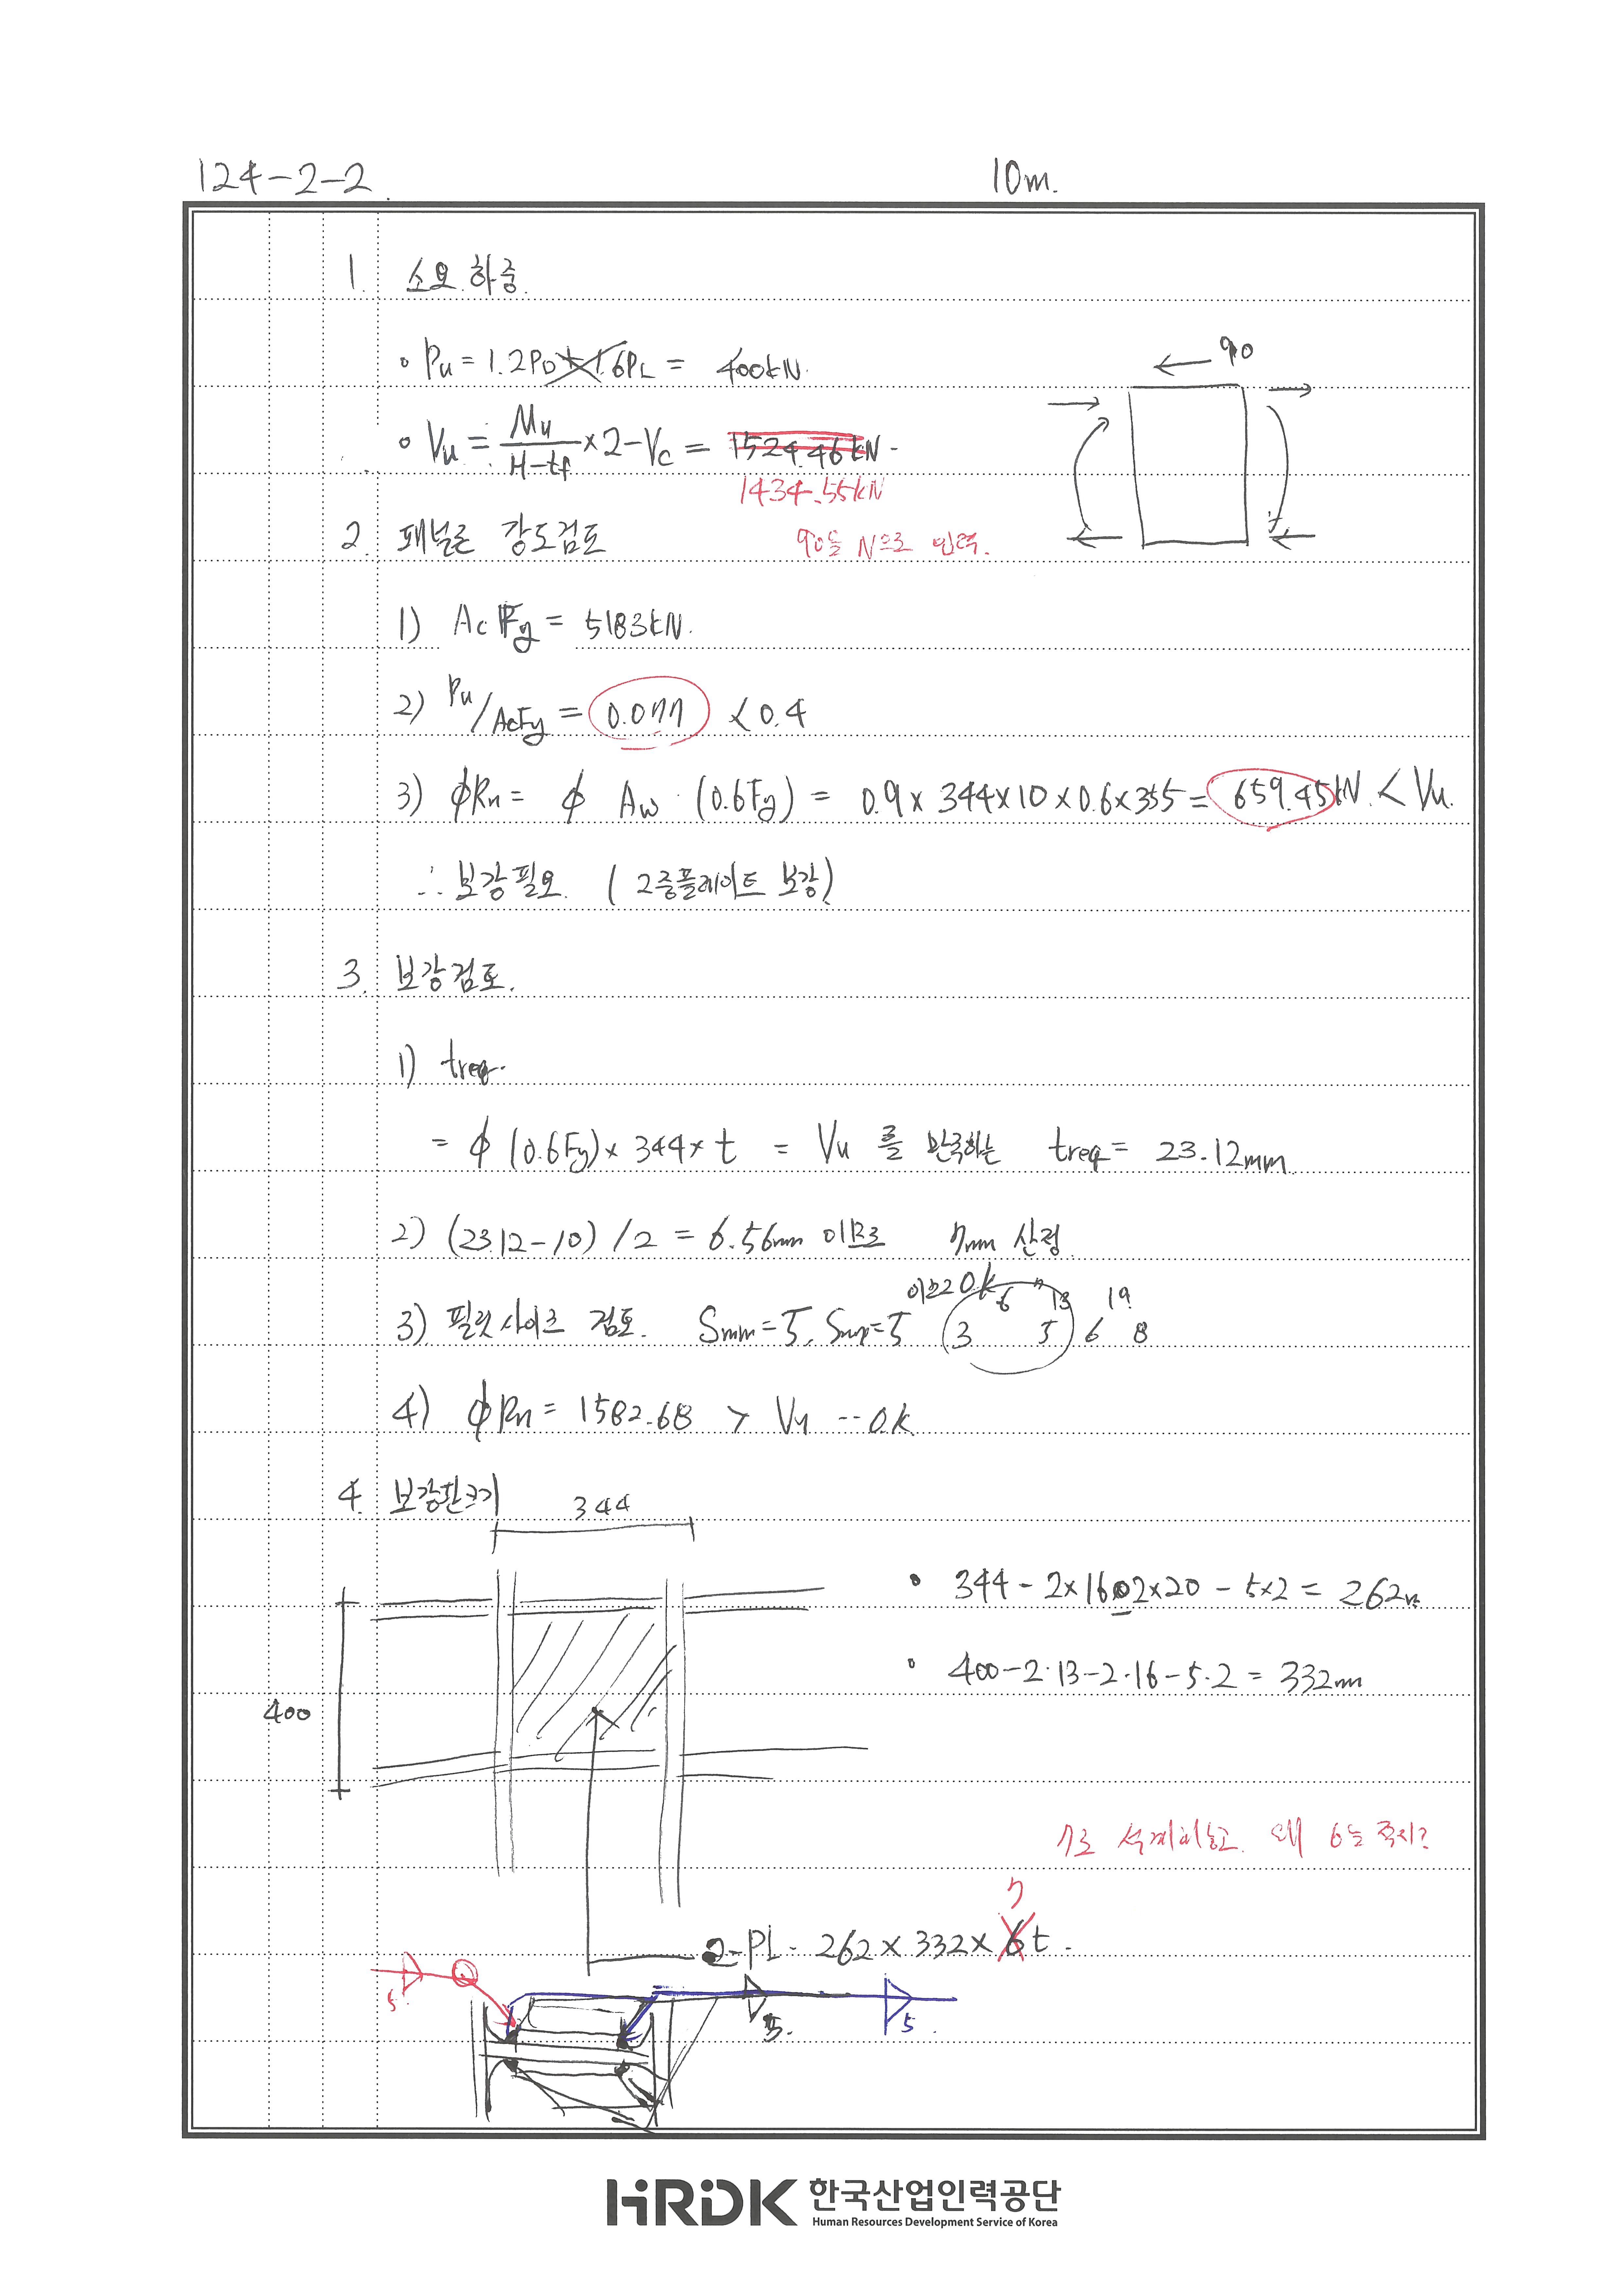 124-2-2.
10m.
1. 소요하중.
∘ Pu = 1.2PD+1.6PL = 400kN.
← 90
∘ Vu = Mu/(H-tf) ×2-Vc = 1524.46kN.
1434.55kN
2. 패널존 강도검토
90을 N으로 입력.
1) AcFy = 5183kN.
2) Pu/AcFy = 0.077 < 0.4
3) ϕRn = ϕ Aw · (0.6Fy) = 0.9 × 344×10×0.6×355 = 659.45kN. < Vu.
∴ 보강필요. (2중플레이트 보강)
3. 보강검토.
1) treq.
= ϕ (0.6Fy)× 344× t = Vu 를 만족하는 treq = 23.12mm
2) (23.12-10) /2 = 6.56mm 이므로 7mm 산정.
이므로 O.K
6 7 13 19
3) 필릿사이즈 검토. Smin=5, Smax=5 (3 5) 6 8
4) ϕRn = 1582.68 > Vu --O.K
4. 보강판크기
344
• 344 - 2×16-2×20 - 5×2 = 262m
∘ 400-2·13-2·16-5·2 = 332mm
400
7로 설계하고. 왜 6을 적지?
7
2-PL- 262 × 332× 6t.
5
5.
5.
HRDK 한국산업인력공단
Human Resources Development Service of Korea